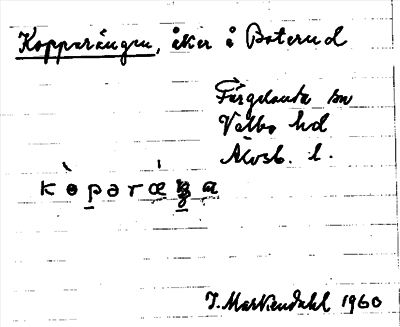 Kopparängen, åker å Boterud
Färgelanda sn
Valbo hd
Älvsb. l.
kɵ̀pərǽŋa
J. Markendahl 1960